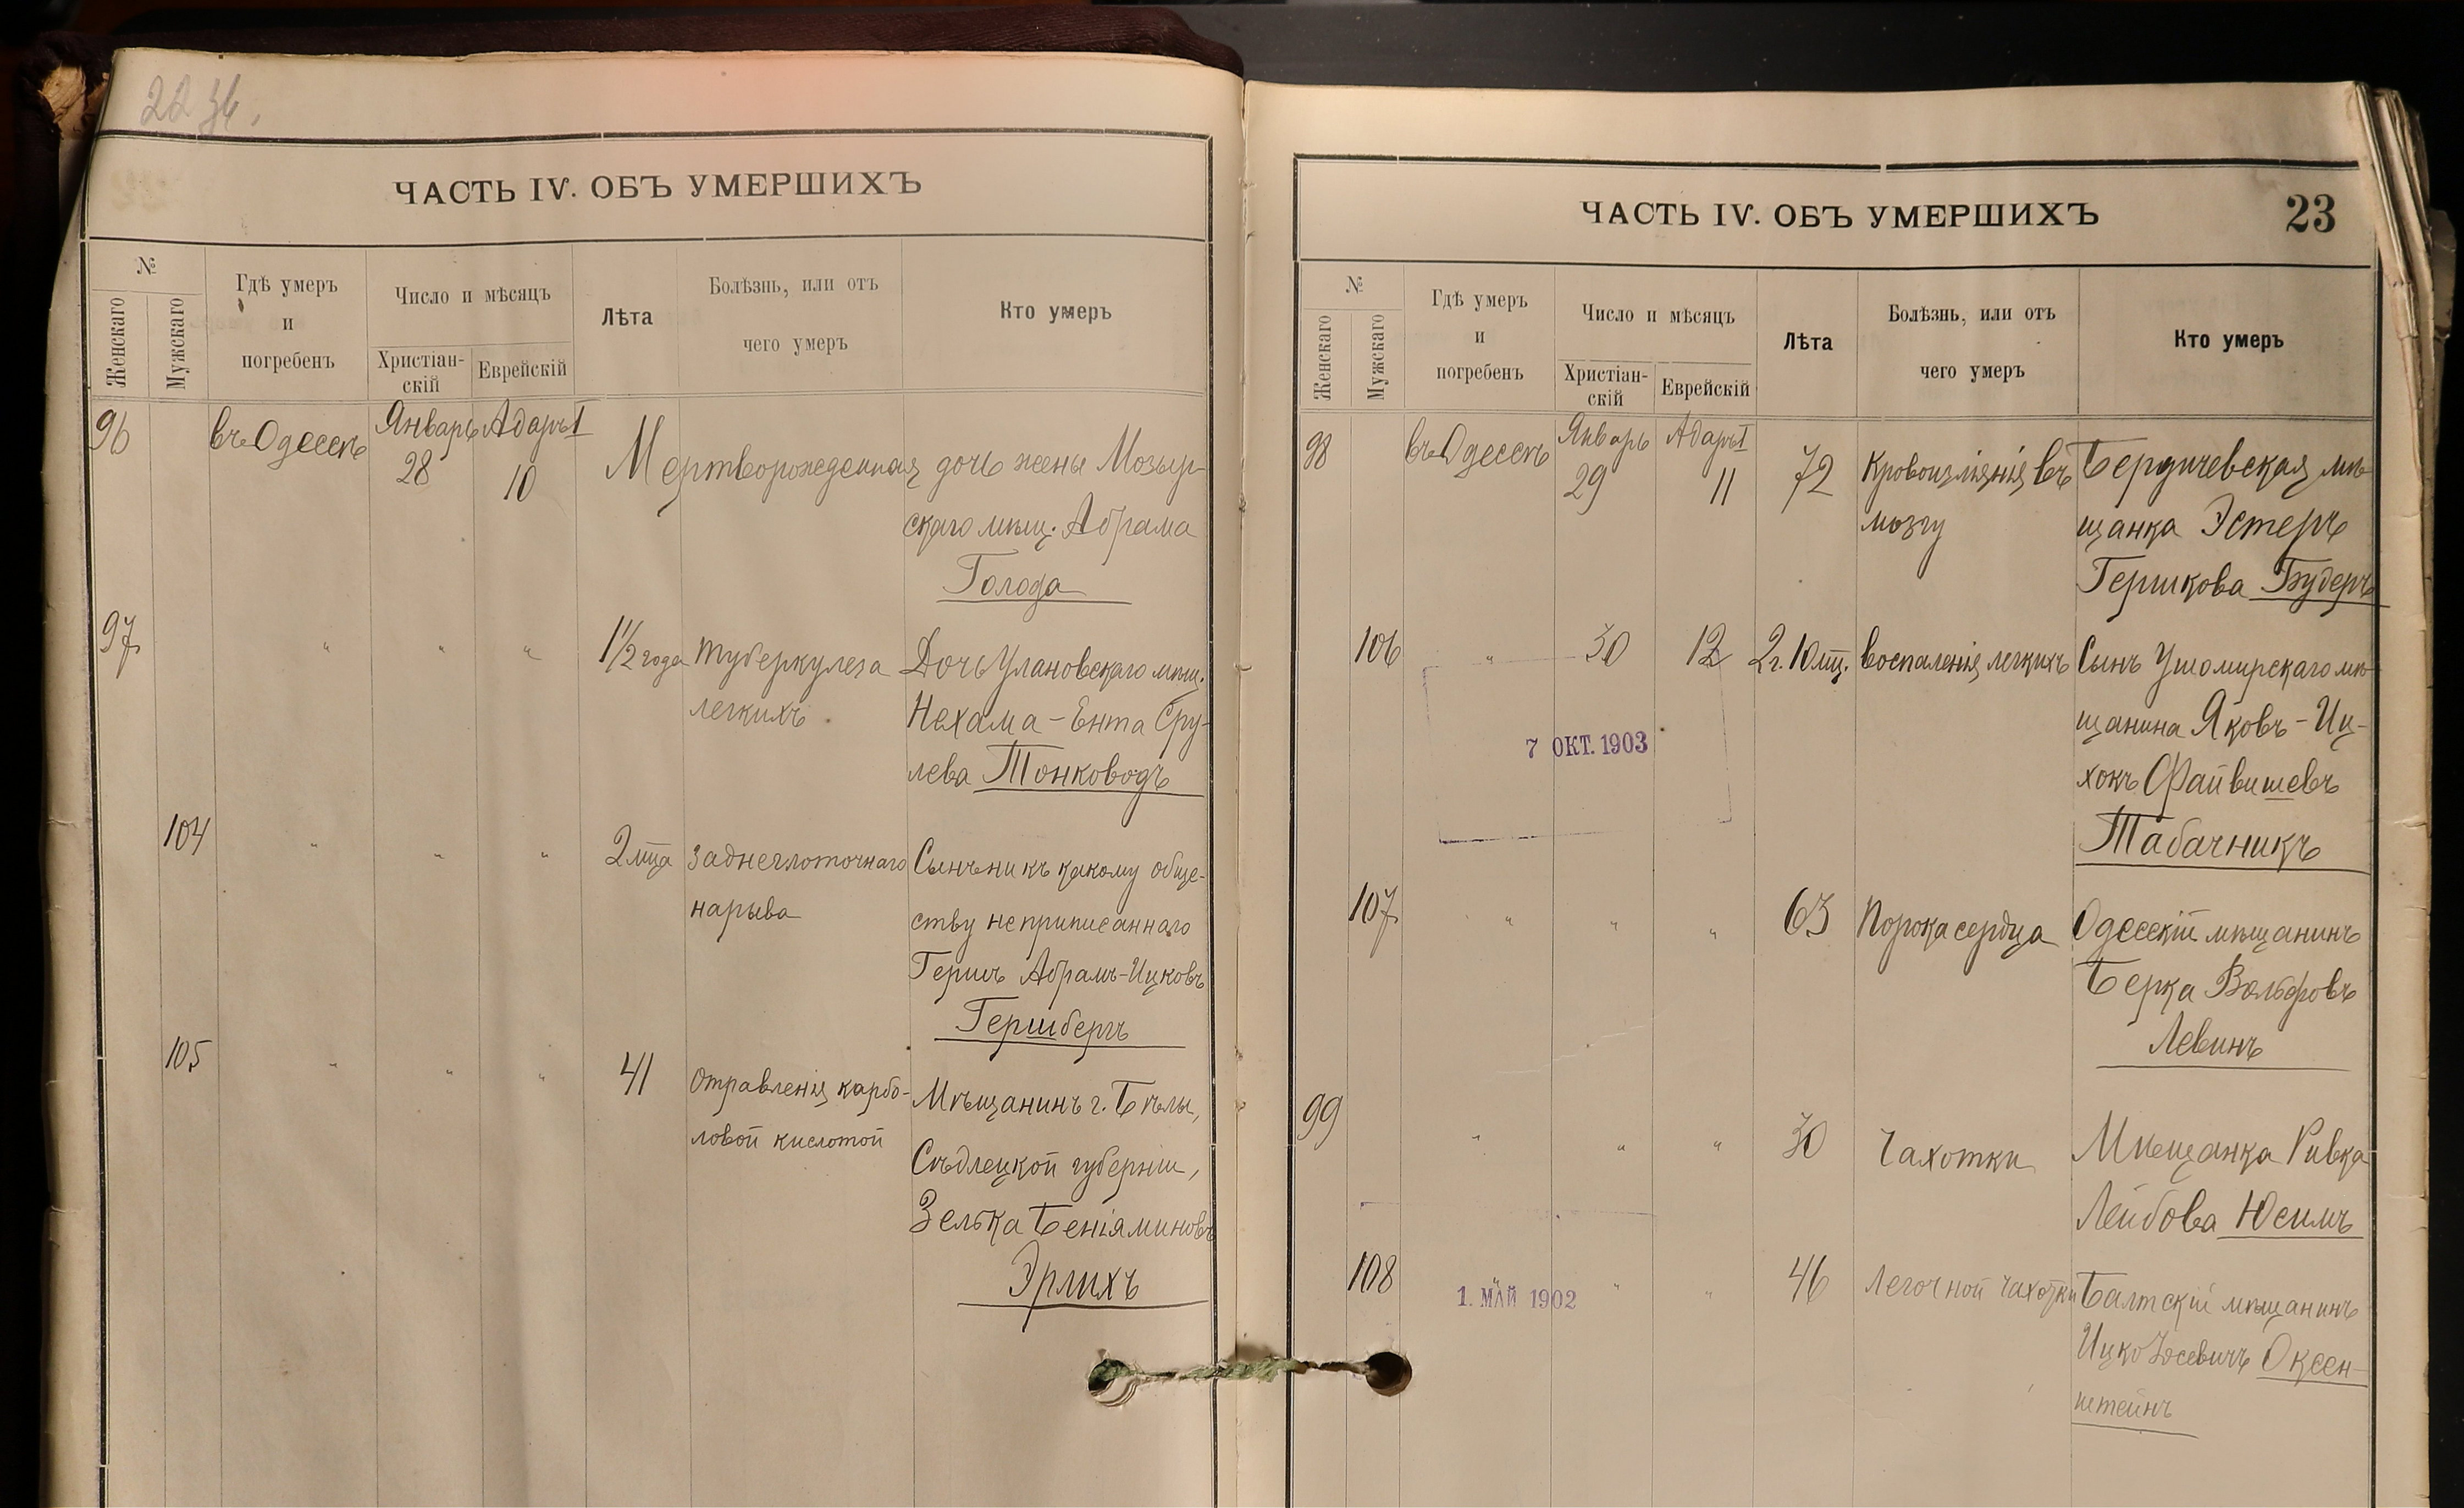 22 об.
ЧАСТЬ IV. ОБЪ УМЕРШИХЪ
№
Женскаго
Мужскаго
Гдѣ умеръ
и
погребенъ
Число и мѣсяцъ
Христіан-
скій
Еврейскій
Лѣта
Болѣзнь, или отъ
чего умеръ
Кто умеръ
96 въ Одессѣ Январь 28 Адаръ I 10 Мертворожденная дочь жены Мозыр-
скаго мѣщ. Абрама
Голода
97 " " " 1½ года туберкулеза Дочь Улановскаго мѣщ.
легкихъ Нехама-Ента Сру-
лева Тонководъ
104 " " " 2 мца заднеглоточнаго Сынъ ни къ какому обще-
нарыва ству неприписаннаго
Гершъ Абрамъ-Ицковъ
Гершбергъ
105 " " " 41 отравленія карбо- Мѣщанинъ г. Бѣлы,
ловой кислотой Сѣдлецкой губерніи,
Зелька Беніяминовъ
Эрлихъ
ЧАСТЬ IV. ОБЪ УМЕРШИХЪ 23
№
Женскаго
Мужскаго
Гдѣ умеръ
и
погребенъ
Число и мѣсяцъ
Христіан-
скій
Еврейскій
Лѣта
Болѣзнь, или отъ
чего умеръ
Кто умеръ
98 въ Одессѣ Январь 29 Адаръ I 11 72 Кровоизліянія въ Бердичевская мѣ-
мозгу щанка Эстеръ
Гершкова Будеръ
106 " 30 12 2 г. 10 мц. воспаленія легкихъ Сынъ Ушомирскаго мѣ-
щанина Яковъ-Иц-
7 ОКТ. 1903
хокъ Файвишевъ
Табачникъ
107 " " " 63 Порока сердца Одесскій мѣщанинъ
Берка Вольфовъ
Левинъ
99 " " " 30 Чахотки Мѣщанка Ривка
Лейбова Юсимъ
108 " " " 46 Легочной чахотки Балтскій мѣщанинъ
1. МАЙ 1902
Ицко Іосевичъ Оксен-
штейнъ